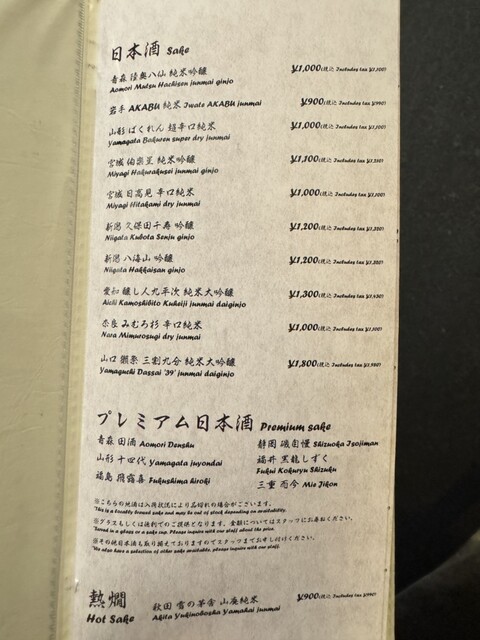 日本酒 Sake
青森 陸奥八仙 純米吟醸 ¥1,000(税込 Includes tax ¥1,100)
Aomori Mutsu Hachisen junmai ginjo
岩手 AKABU 純米 Iwate AKABU junmai ¥900(税込 Includes tax ¥990)
山形 ばくれん 超辛口純米 ¥1,000(税込 Includes tax ¥1,100)
Yamagata Bakuren super dry junmai
宮城 伯楽星 純米吟醸 ¥1,100(税込 Includes tax ¥1,210)
Miyagi Hakurakusei junmai ginjo
宮城 日高見 辛口純米 ¥1,000(税込 Includes tax ¥1,100)
Miyagi Hitakami dry junmai
新潟 久保田千寿 吟醸 ¥1,200(税込 Includes tax ¥1,320)
Niigata Kubota Senju ginjo
新潟 八海山 吟醸 ¥1,200(税込 Includes tax ¥1,320)
Niigata Hakkaisan ginjo
愛知 醸し人九平次 純米大吟醸 ¥1,300(税込 Includes tax ¥1,430)
Aichi Kamoshibito Kuheiji junmai daiginjo
奈良 みむろ杉 辛口純米 ¥1,000(税込 Includes tax ¥1,100)
Nara Mimurosugi dry junmai
山口 獺祭 三割九分 純米大吟醸 ¥1,800(税込 Includes tax ¥1,980)
Yamaguchi Dassai '39' junmai daiginjo
プレミアム日本酒 Premium sake
青森 田酒 Aomori Denshu 静岡 磯自慢 Shizuoka Isojiman
山形 十四代 Yamagata juyondai 福井 黒龍しずく
Fukui Kokuryu Shizuku
福島 飛露喜 Fukushima hiroki 三重 而今 Mie Jikon
※こちらの地酒は入荷状況により品切れの場合がございます。
*This is a locally brewed sake and may be out of stock depending on availability.
※グラスもしくは徳利でのご提供となります。金額についてはスタッフにお尋ねください。
*Served in a glass or a sake cup. Please inquire with our staff about the price.
※その他日本酒も取り揃えておりますのでスタッフまでお申し付けください。
*We also have a selection of other sake available, please inquire with our staff.
熱燗 秋田 雪の茅舎 山廃純米 ¥900(税込 Includes tax ¥990)
Hot Sake Akita Yukinobosha Yamahai junmai